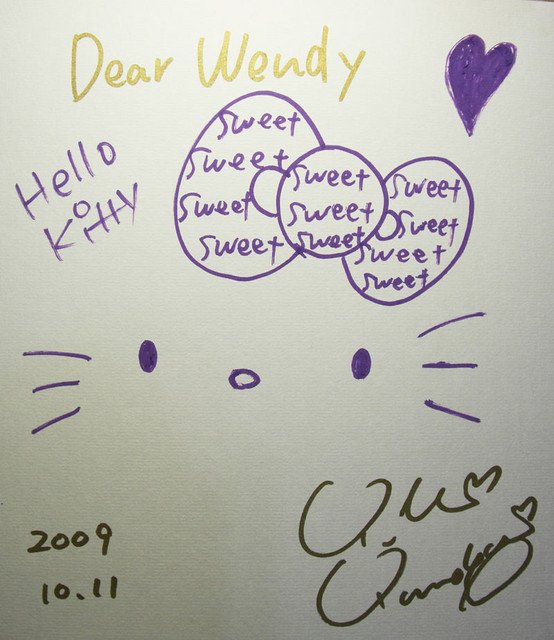 Dear Wendy
Hello
Kitty
sweet
sweet
sweet
sweet
sweet
sweet
sweet
sweet
sweet
sweet
sweet
2009
10.11